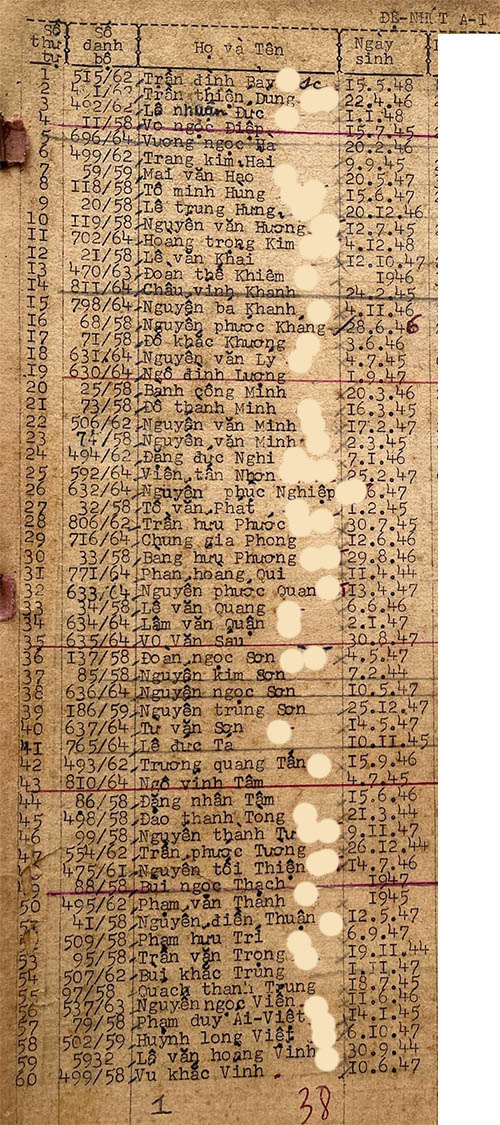 ĐỆ-NHẤT A-I
Số thứ tự Số danh bộ Họ và Tên Ngày sinh
1 515/62 Trần đình Bảy 15.5.48
2 Trần thiện Dung 22.4.46
3 462/62 Lê nhuận Đức I.I.48
4 II/58 Vo ngọc Điệp 15.7.45
5 696/64 Vương ngọc Hà 20.2.46
6 499/62 Trang kim Hai 9.9.45
7 59/59 Mai văn Hạo 20.5.47
8 II8/58 Tô minh Hùng 15.6.47
9 20/58 Lê trung Hưng 20.12.46
10 II9/58 Nguyễn văn Hương 12.7.45
II 702/64 Hoang trọng Kim 4.12.48
I2 2I/58 Lê văn Khai I2.IO.47
I3 470/63 Đoan thế Khiêm I946
I4 8II/64 Châu vinh Khanh 24.2.45
I5 798/64 Nguyễn bá Khanh 4.II.46
I6 68/58 Nguyễn phước Khang 28.6.46
I7 7I/58 Đỗ khắc Khương 3.6.46
I8 63I/64 Nguyễn văn Lý 4.7.45
I9 630/64 Ngô đình Lương I.9.47
20 25/58 Bành công Minh 20.3.46
2I 73/58 Đỗ thanh Minh I6.3.45
22 506/62 Nguyễn văn Minh I7.2.47
23 74/58 Nguyễn văn Minh 2.3.45
24 494/62 Đặng đức Nghi 7.I.46
25 592/64 Viên tấn Nhơn 25.2.47
26 632/64 Nguyễn phúc Nghiệp 6.47
27 32/58 Tô văn Phát I.2.45
28 806/62 Trần hưu Phước 30.7.45
29 7I6/64 Chung gia Phong I2.6.46
30 33/58 Bàng hưu Phương 29.8.46
3I 77I/64 Phan hoang Qui II.4.44
32 633/64 Nguyễn phước Quan I3.4.47
33 34/58 Lê văn Quang 6.6.46
34 634/64 Lâm văn Quân 2.I.47
35 635/64 Võ Văn Sau 30.8.47
36 I37/58 Đoàn ngọc Sơn 4.5.47
37 85/58 Nguyễn kim Sơn 7.2.44
38 636/64 Nguyễn ngọc Sơn IO.5.47
39 I86/59 Nguyễn trung Sơn 25.I2.47
40 637/64 Tư văn Sơn I4.5.47
4I 765/64 Lê đức Ta IO.II.45
42 493/62 Trương quang Tấn I5.9.46
43 8IO/64 Ngô vinh Tâm 4.7.45
44 86/58 Đặng nhân Tâm I5.6.46
45 498/58 Đào thanh Tong 2I.3.44
46 99/58 Nguyễn thanh Tư 9.II.47
47 554/62 Trần phước Tương 26.I2.44
475/6I Nguyễn tối Thiện I4.7.46
88/58 Bui ngọc Thạch I947
50 495/62 Phạm văn Thành I945
4I/58 Nguyễn điền Thuận I2.5.47
509/58 Phạm hưu Tri 6.9.47
53 95/58 Trần văn Trọng I9.II.44
54 507/62 Bui khắc Trung I.II.47
55 97/58 Quach thanh Trung I8.7.45
56 537/63 Nguyễn ngọc Viên II.6.46
57 79/58 Phạm duy Ai-Việt I4.I.45
58 502/59 Huỳnh long Việt 6.IO.47
59 5932 Lê văn hoang Vinh 30.9.44
60 499/58 Vu khắc Vinh IO.6.47
1 38